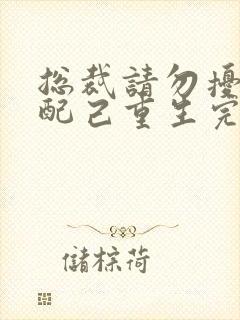 総裁請勿擾
配己重生完
儲棕荷